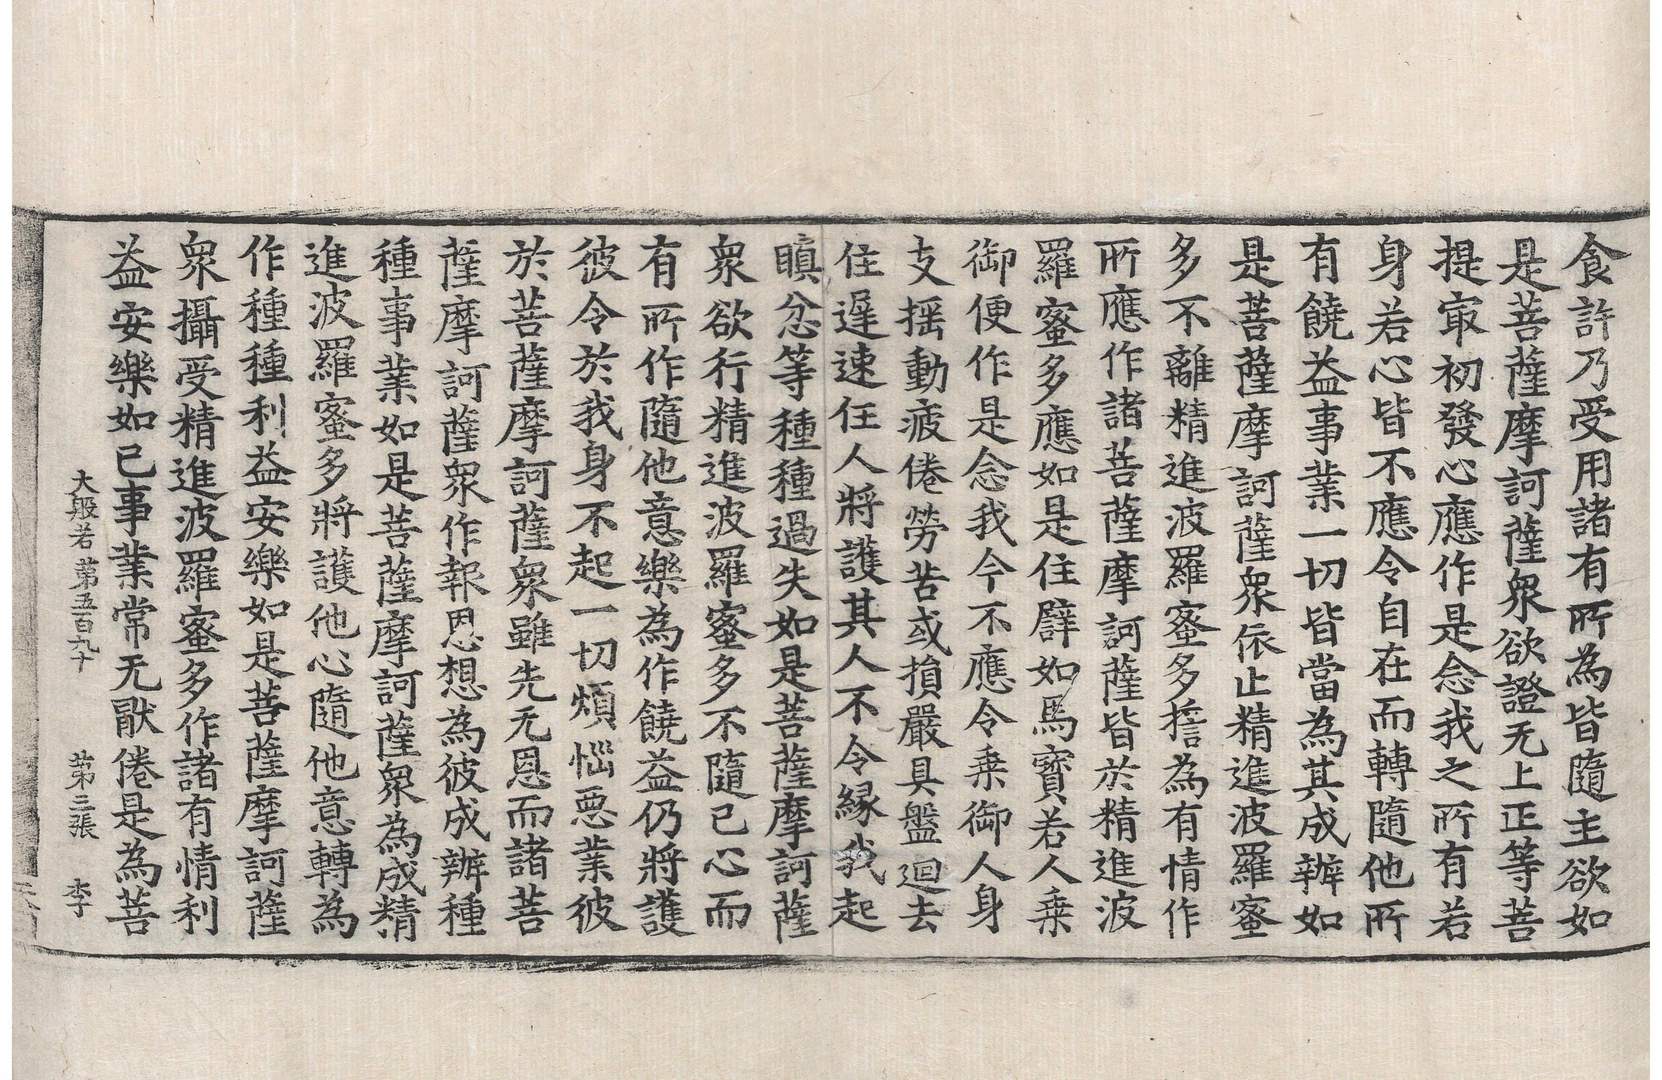 食許乃受用諸有所為皆隨主欲如
是菩薩摩訶薩衆欲證无上正等菩
提㝡初發心應作是念我之所有若
身若心皆不應令自在而轉隨他所
有饒益事業一切皆當為其成辦如
是菩薩摩訶薩衆依止精進波羅蜜
多不離精進波羅蜜多誓為有情作
所應作諸菩薩摩訶薩皆於精進波
羅蜜多應如是住譬如馬寶若人乗
御便作是念我今不應令乗御人身
支摇動疲倦勞苦或損嚴具盤迴去
住遲速任人將護其人不令緣我起
瞋忿等種種過失如是菩薩摩訶薩
衆欲行精進波羅蜜多不隨己心而
有所作隨他意樂為作饒益仍將護
彼令於我身不起一切煩惱惡業彼
於菩薩摩訶薩衆雖先无恩而諸菩
薩摩訶薩衆作報恩想為彼成辦種
種事業如是菩薩摩訶薩衆為成精
進波羅蜜多將護他心隨他意轉為
作種種利益安樂如是菩薩摩訶薩
衆攝受精進波羅蜜多作諸有情利
益安樂如己事業常无猒倦是為菩
大般若第五百九十 第三張 李